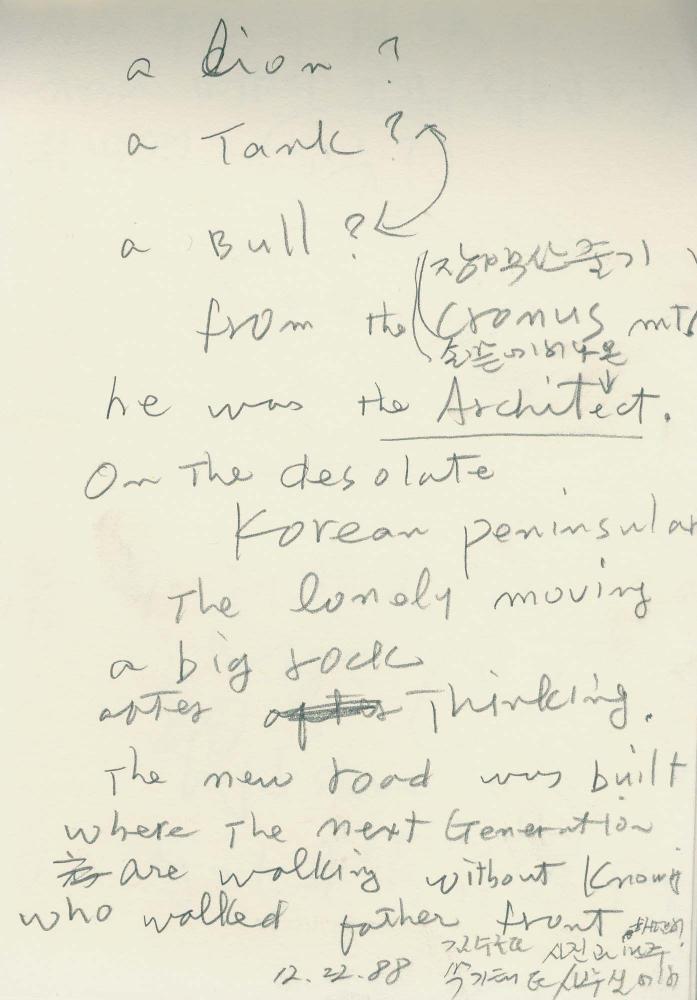 a Lion ?
a Tank ?
a Bull ?
from the Cronus mts
he was the Architect.
On The desolate
Korean peninsular
The lonely moving
a big rock
after Thinking.
The new road was built
where The next Generation
are walking without Knowing
who walked father front.
12.22.88